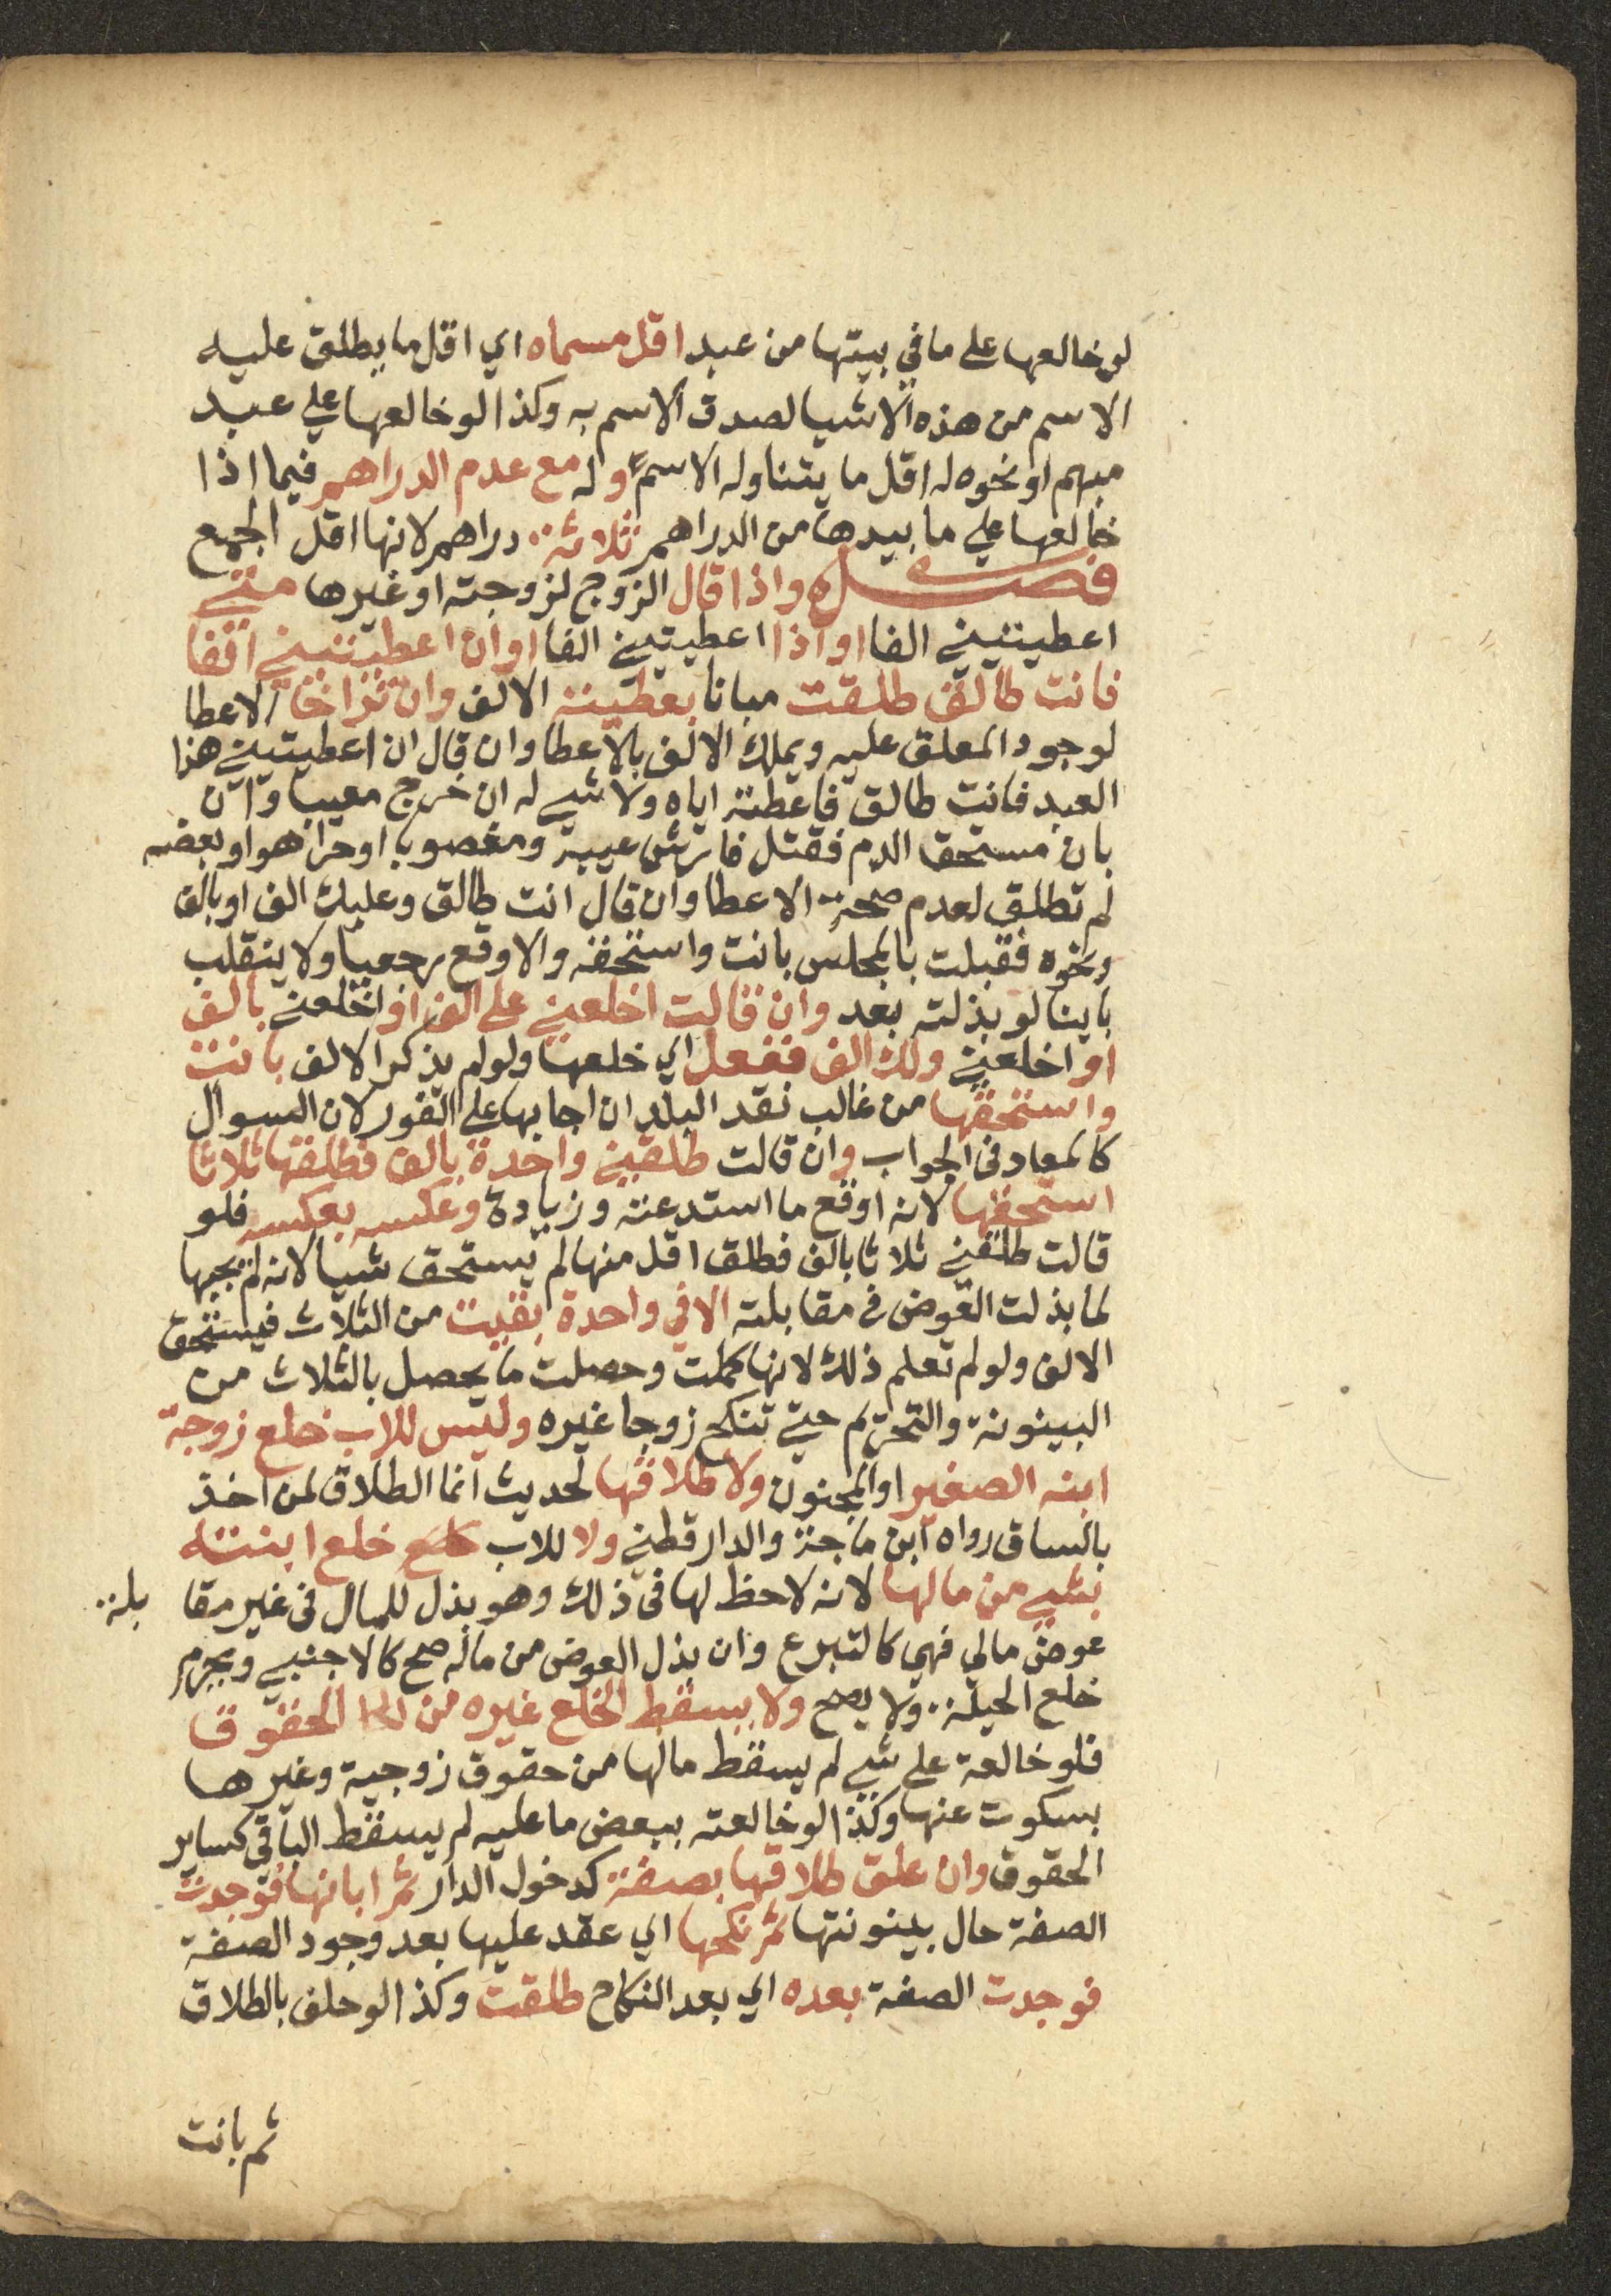 لو خالعها على ما في بيتها من عبد اقل مسماه اي اقل ما يطلق عليه
الاسم من هذه الاشيا لصدق الاسم به وكذا لو خالعها علي عبد
مبهم او نحوه له اقل ما يتناوله الاسم وله مع عدم الدراهم فيما اذا
خالعها علي ما بيدها من الدراهم ثلاثة دراهم لانها اقل الجمع
فصل واذا قال الزوج لزوجته او غيرها متي
اعطيتيني الفا او اذا اعطيتيني الفا او ان اعطيتيني الفا
فانت طالق طلقت مبانا بعطيته الالف وان تراخا الاعطا
لوجود المعلق عليه ويملك الالف بالاعطا وان قال ان اعطيتيني هذا
العبد فانت طالق فاعطته اياه ولا شي له ان خرج معيبا وان
بان مستحق الدم فقتل فارش عيبه ومغصوبا او حرا هو او بعضه
لم تطلق لعدم صحة الاعطا وان قال انت طالق وعليك الف او بالف
ونحوه فقبلت بالمجلس بانت واستحقه والا وقع رجعيا ولا ينقلب
باينا لو بذلته بعد وان قالت اخلعني على الف او اخلعني بالف
او اخلعني ولك الف ففعل اي خلعها ولو لم يذكر الالف بانت
واستحقها من غالب نقد البلد ان اجابها على الفور لان السوال
كالمعاد في الجواب وان قالت طلقني واحدة بالف فطلقها ثلاثا
استحقها لانه اوقع ما استدعته وزيادة وعكسه بعكسه فلو
قالت طلقني ثلاثا بالف فطلق اقل منها لم يستحق شيا لانه لم يجبها
لما بذلت العوض في مقابلته الا في واحدة بقيت من الثلاث فيستحق
الالف ولو لم تعلم ذلك لانها كملت وحصلت ما يحصل بالثلاث من
البينونة والتحريم حتي تنكح زوجا غيره وليس للاب خلع زوجة
ابنه الصغير او المجنون ولا طلاقها لحديث انما الطلاق لمن اخذ
بالساق رواه ابن ماجة والدارقطني ولا للاب خلع خلع ابنته
بشي من مالها لانه لا حظ لها في ذلك وهو بذل للمال في غير مقا بلة
عوض مالي فهي كالتبرع وان بذل العوض من ماله صح كالاجنبي ويحرم
خلع الحيلة ولا يصح ولا يسقط الخلع غيره من الحقوق
فلو خالعة على شي لم يسقط مالها من حقوق زوجية وغيرها
بسكوت عنها وكذا لو خالعته ببعض ما عليه لم يسقط الباقي كساير
الحقوق وان علق طلاقها بصفة كدخول الدار ثم ابانها فوجدت
الصفة حال بينونتها ثم نكحها اي عقد عليها بعد وجود الصفة
فوجدت الصفة بعده اي بعد النكاح طلقت وكذا لو حلف بالطلاق
ثم بانت